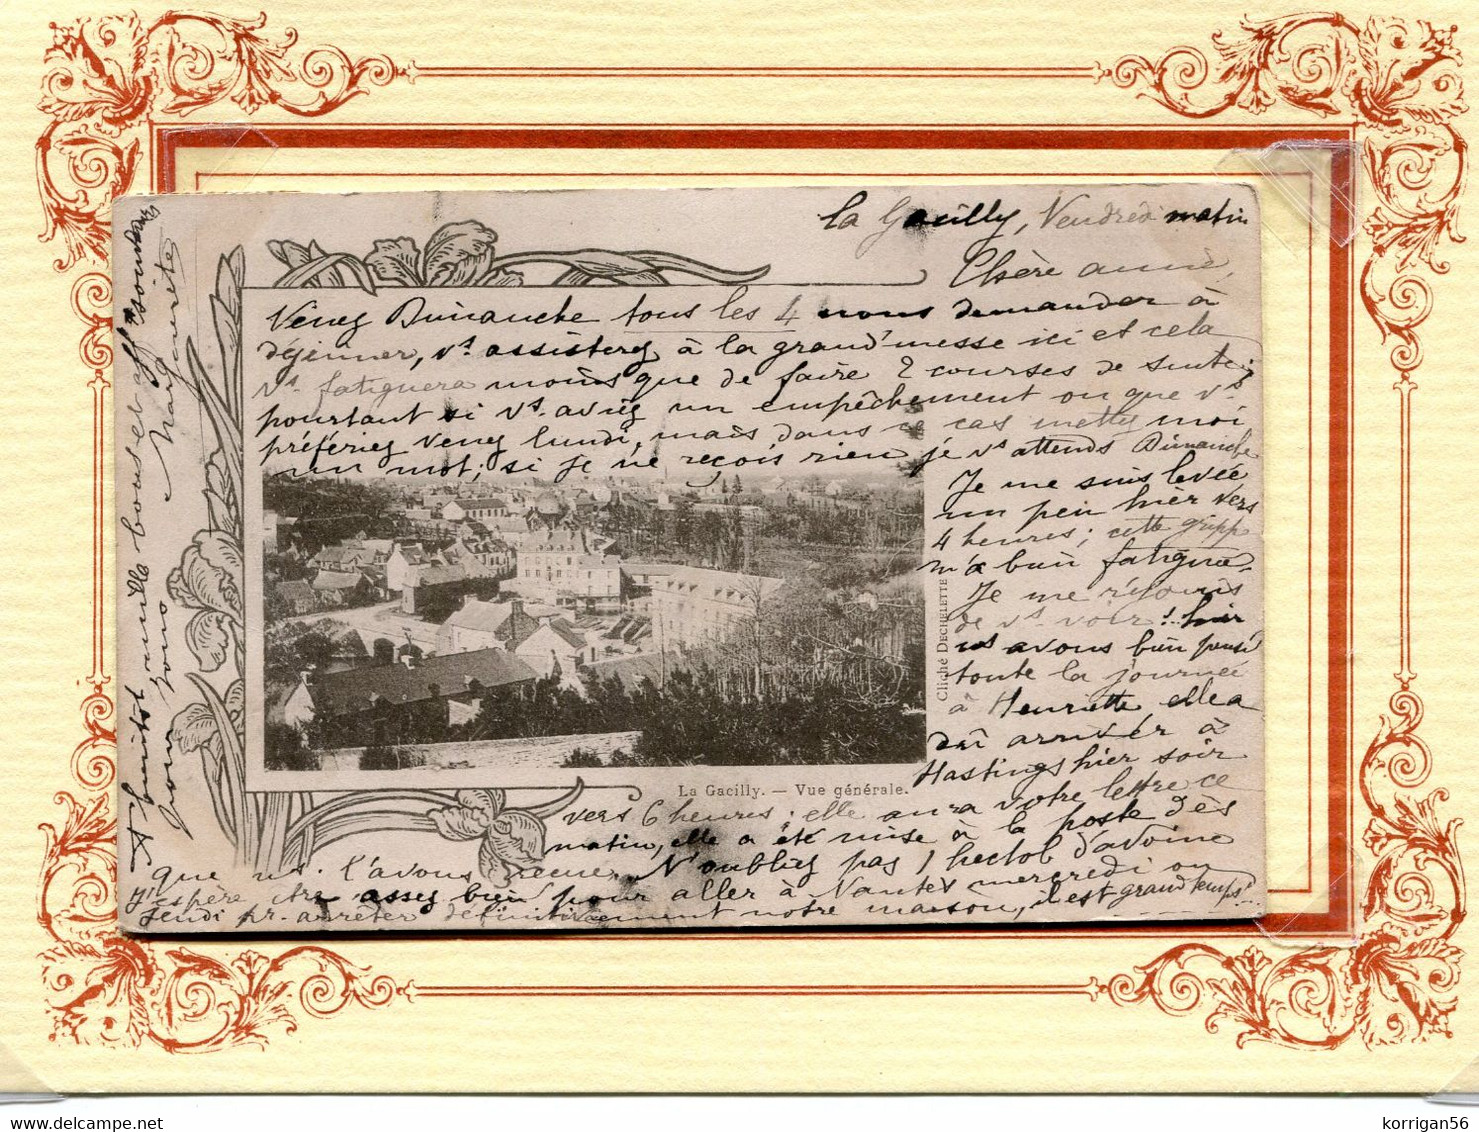 La Gacilly, Vendredi matin
Chère amie,
Venez Dimanche tous les 4 nous demander à
déjeuner, vs. assisterez à la grand'messe ici et cela
vs. fatiguera moins que de faire 2 courses de suite;
pourtant si vs. aviez un empêchement ou que vs.
préfériez venez lundi, mais dans ce cas mettez moi
un mot; si je ne reçois rien je vs attends Dimanche
Je me suis levée
un peu hier vers
4 heures; cette gripp
m'a bien fatiguée.
Je me réjouis
de vs. voir! hier
ns avons bien pensé
toute la journée
à Henriette elle a
dû arriver à
Hastings hier soir
vers 6 heures; elle aura votre lettre ce
matin, elle a été mise à la poste dès
que ns. l'avons reçue. N'oubliez pas 1 hectol d'avoine
J'espère être assez bien pour aller à Nantes mercredi ou
Jeudi pr. arrêter définitivement notre maison, il est grand temps!
A bientôt famille bons et affts souvenirs
pour vous Marguerite
Cliché DECHELETTE
La Gacilly. — Vue générale.
korrigan56